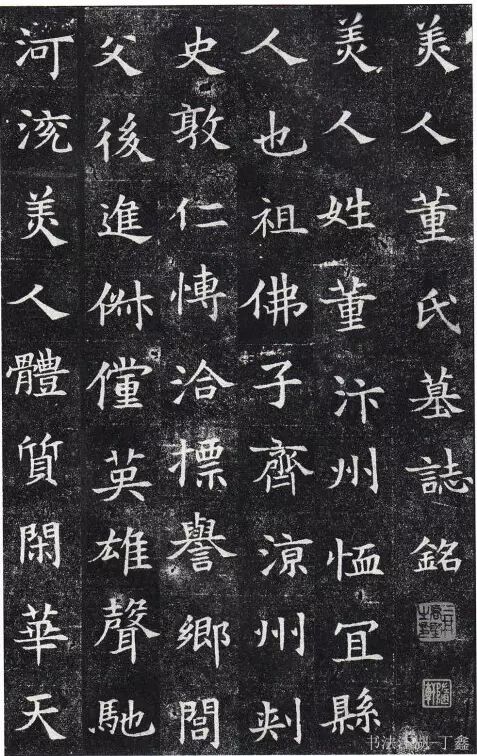 美人董氏墓誌銘
美人姓董汴州恤冝縣
人也祖佛子齊涼州刾
史敦仁愽洽摽譽鄉閭
父後進俶儻英雄聲馳
河浇美人體質閑華天
书法 丁鑫